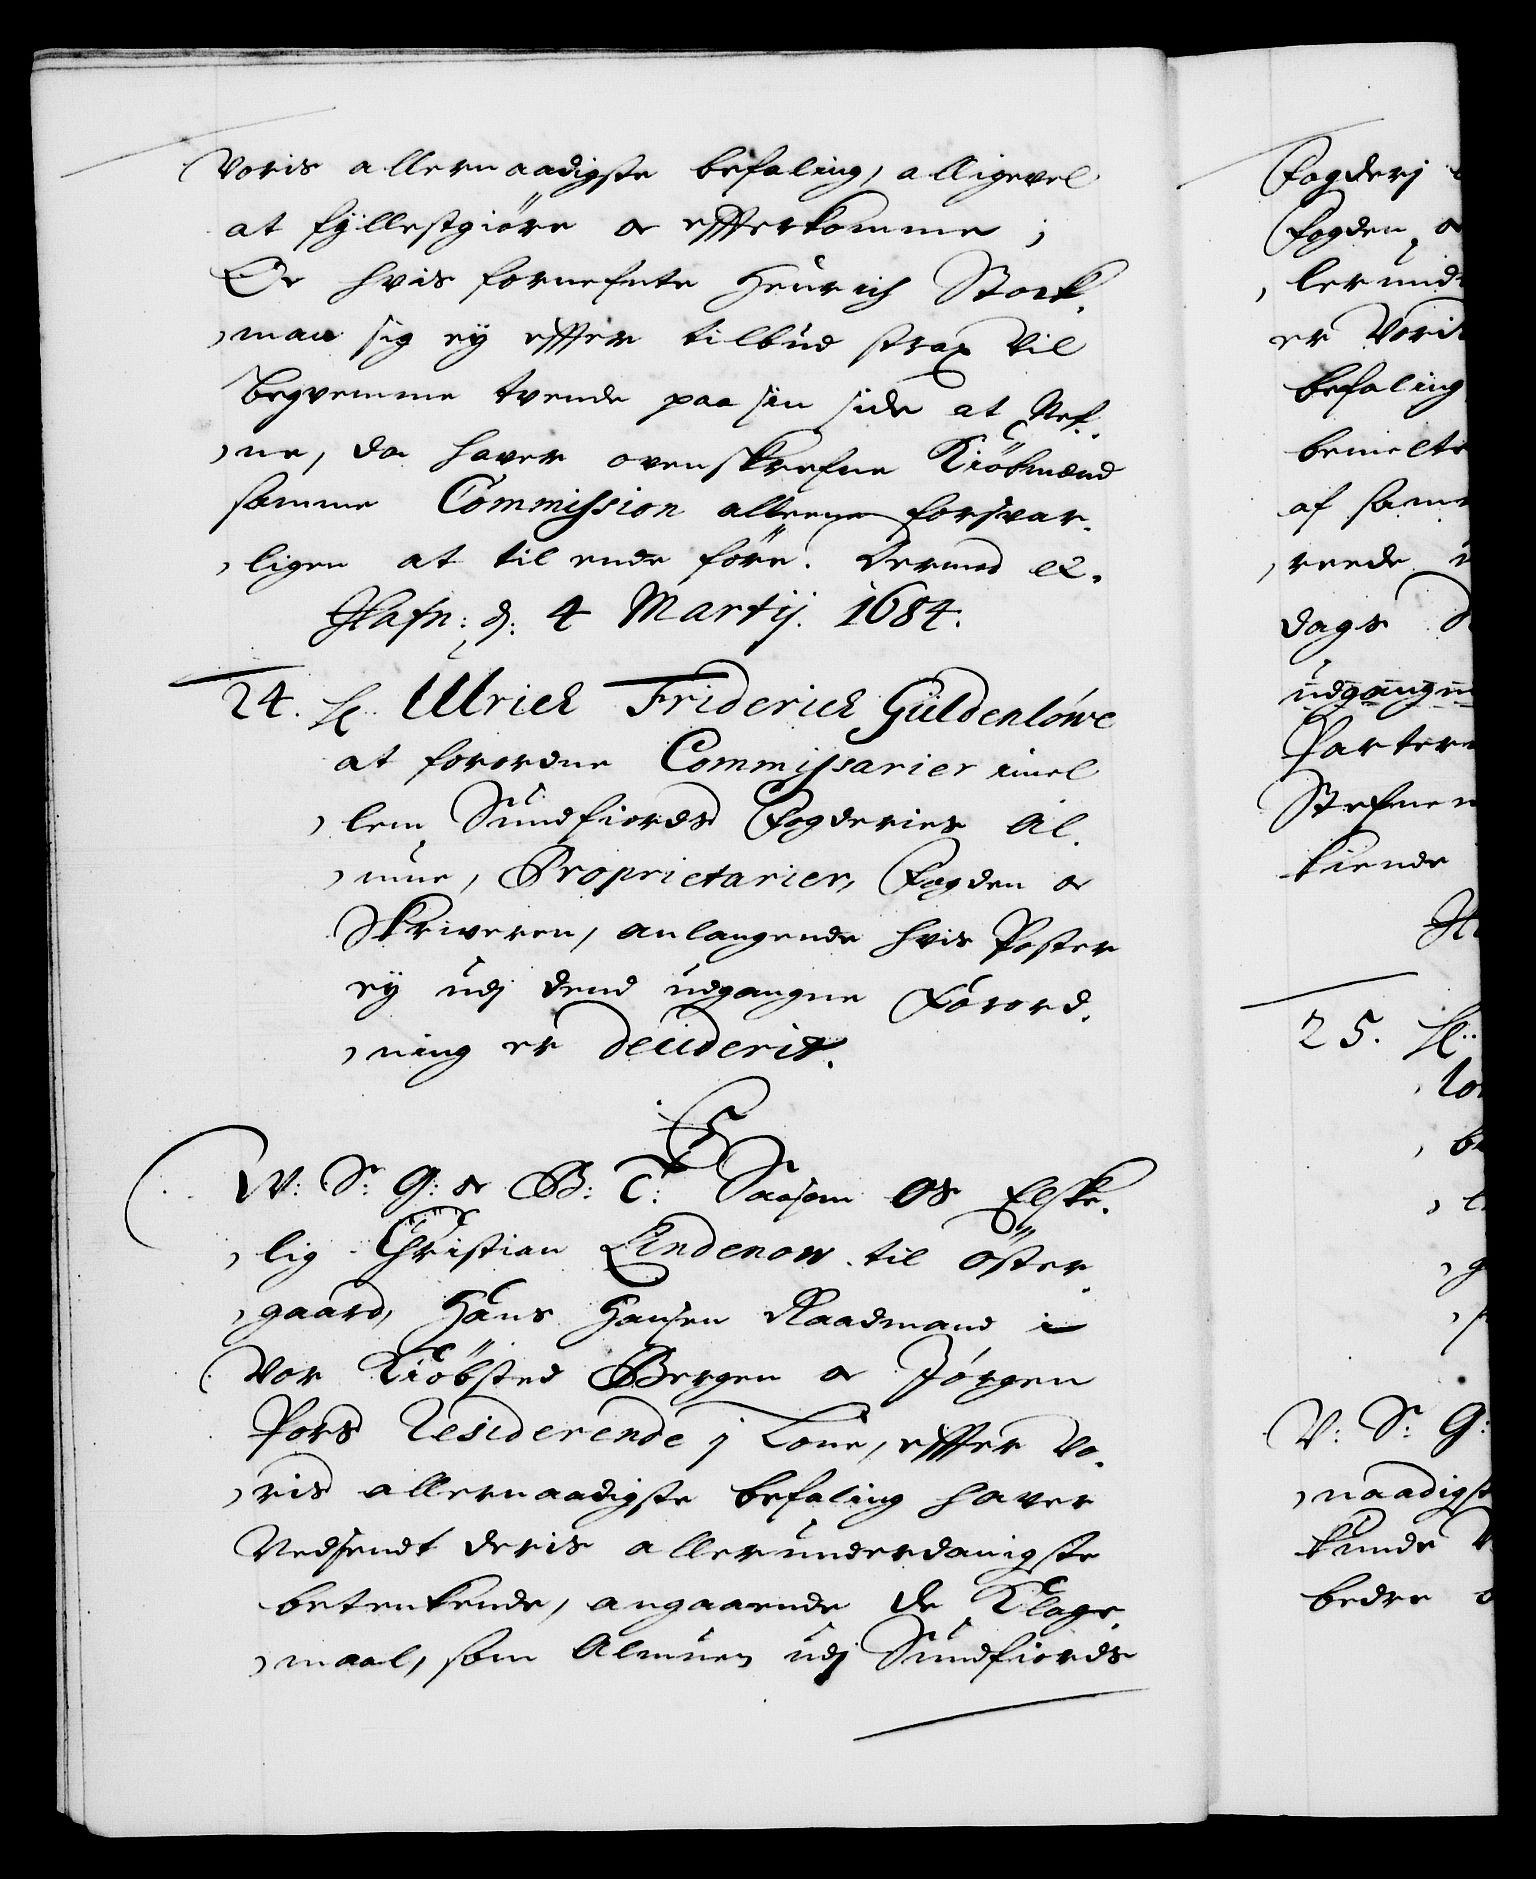 Voris allernaadigste befaling, alligevel
at fyllestgiöre oc effterkomme;
Oc hvis fornefnte Henrich Stock-
man sig ey effter tilbud strax vil
beqvemme tvende paa sin side at Nef-
ne, da haver ovenskrefne Kiöbmænd
samme Commission alleene forsvar-
ligen at til ende före. Dermed etc.
Hafn: d: 4 Martij. 1684.
24. H. Ulrich Friderich Güldenlöwe
at forordne Commissarier imel
lem Sundfiords Fogderies Al-
mue, Proprietarier, Fogden oc
Skriveren, anlangende hvis Poster
ey udj dend udgangne Forord-
ning er deciderit.
C5
W: S: G: oc B: T: Saasom Os Elske-
lig Christian Lindenow til Öster-
gaard, Hans Hansen Raadmand i
Vor Kiöbsted Bergen oc Jörgen
Pors Residerende j Lone, effter Vo-
ris allernaadigste befaling haver
Nedsendt deris allerunderdanigste
betenkende, angaaende de Klage-
maal, som Almuen udj Sundfiords
Fogderj
Fogden oc
lerund
er Voris
befaling
bemelte
af samme
reede
dags
udgangne
Parter
Stefne
kiende
25. H.
V: S: G:
naadigst
kunde
bedre